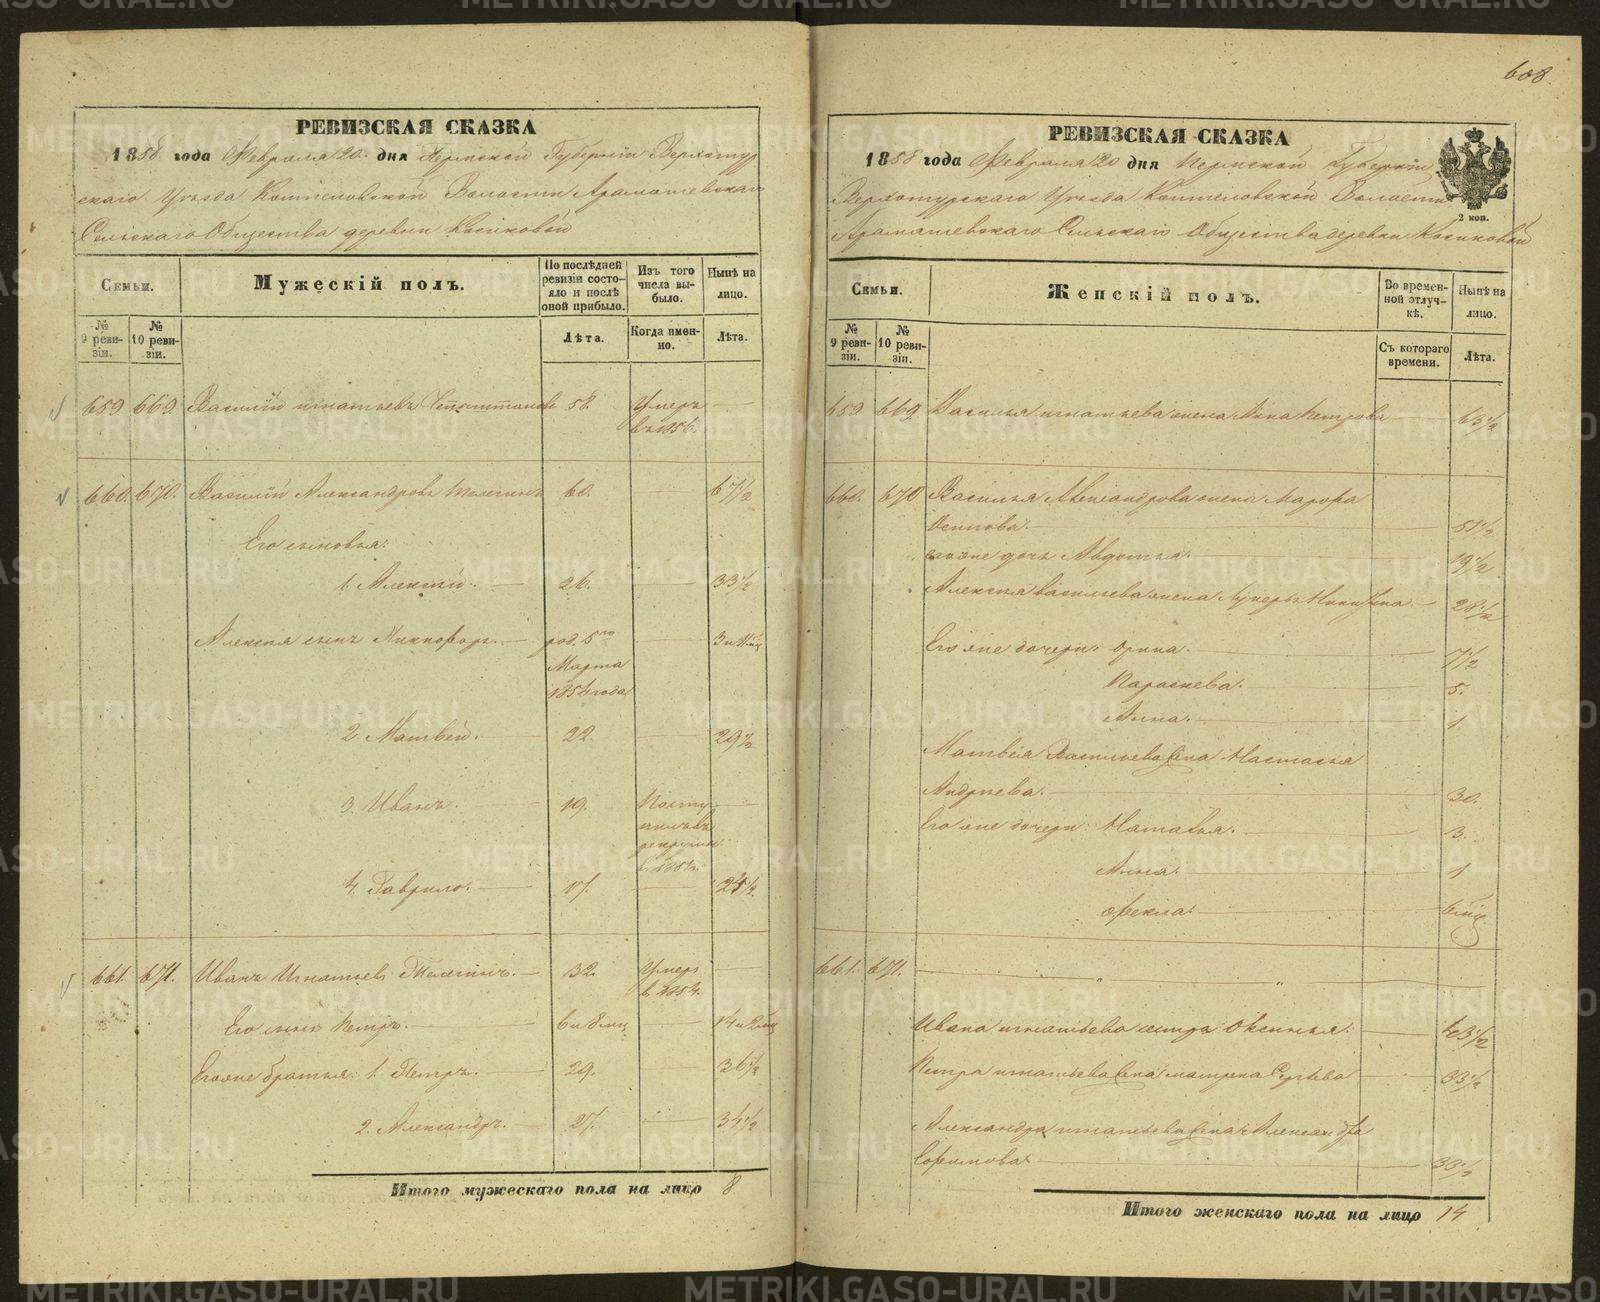 608.
РЕВИЗСКАЯ СКАЗКА
1858 года Февраля 20 дня Пермской Губернiи Верхотур
скаго Уѣзда Коптѣловской Волости Арамашевскаго
Сельскаго Общества деревни Косиковой
Семьи.
Мужескiй полъ.
По послѣдней ревизiи состояло и послѣ оной прибыло.
Изъ того числа выбыло.
Нынѣ на лицо.
№ 9 ревизiи.
№ 10 ревизiи.
Лѣта.
Когда именно.
Лѣта.
659. 669. Василiй Игнатьевъ 58. Умеръ —
въ 1856.
660. 670. Василiй Александровъ Телегинъ 60. — 67 1/2
Его сыновья:
1. Алексѣй. — 26. — 33 1/2
Алексѣя сынъ Никифоръ. — род. 5го — 3 и 11 мц
Марта
1854 года
2. Матвей. — 22. — 29 1/2
3. Иванъ. — 19. Посту
пилъ въ
рекруты
в 1854.
4. Гаврило. — 17. — 24 1/2
661. 671. Иванъ Игнатьев Телегинъ. — 32. Умеръ —
в 1854.
Его сынъ Петръ. — 6 и 8 мц — 14 и 2 мц
Его же братья: 1. Петръ. — 29. — 36 1/2
2. Александръ. — 27. — 34 1/2
Итого мужескаго пола на лицо 8
РЕВИЗСКАЯ СКАЗКА
1858 года Февраля 20 дня Пермской Губернiи
Верхотурскаго Уѣзда Коптеловской Волости
2 коп.
Арамашевскаго Сельскаго Общества деревни Косиковой
Семьи.
Женскiй полъ.
Во временной отлучкѣ.
Нынѣ на лицо.
№ 9 ревизiи.
№ 10 ревизiи.
Съ котораго времени.
Лѣта.
659. 669. Василья Игнатьева жена Анна Петрова — 63 1/2
660. 670 Василья Александрова жена Марфа
Осипова. — 51 1/2
его же дочь Авдотья. — 19 1/2
Алексѣя Васильева жена Лукерья Никитина — 28 1/2
Его же дочери: Орина. — 7 1/2
Параскева. — 5.
Анна. — 1.
Матвѣя Васильева жена Настасья
Андреева. — 30.
Его же дочери: Наталья. — 3.
Анна. 1
Фекла. — 6 мц
661. 671. — „ — „
Ивана Игнатьева сестра Оксинья. — 43 1/2
Петра Игнатьева жена Матрена Сергѣева — 33 1/2
Александра Игнатьева жена Александра
— 30 1/2
Итого женскаго пола на лицо 14
METRIKI.GASO-URAL.RU